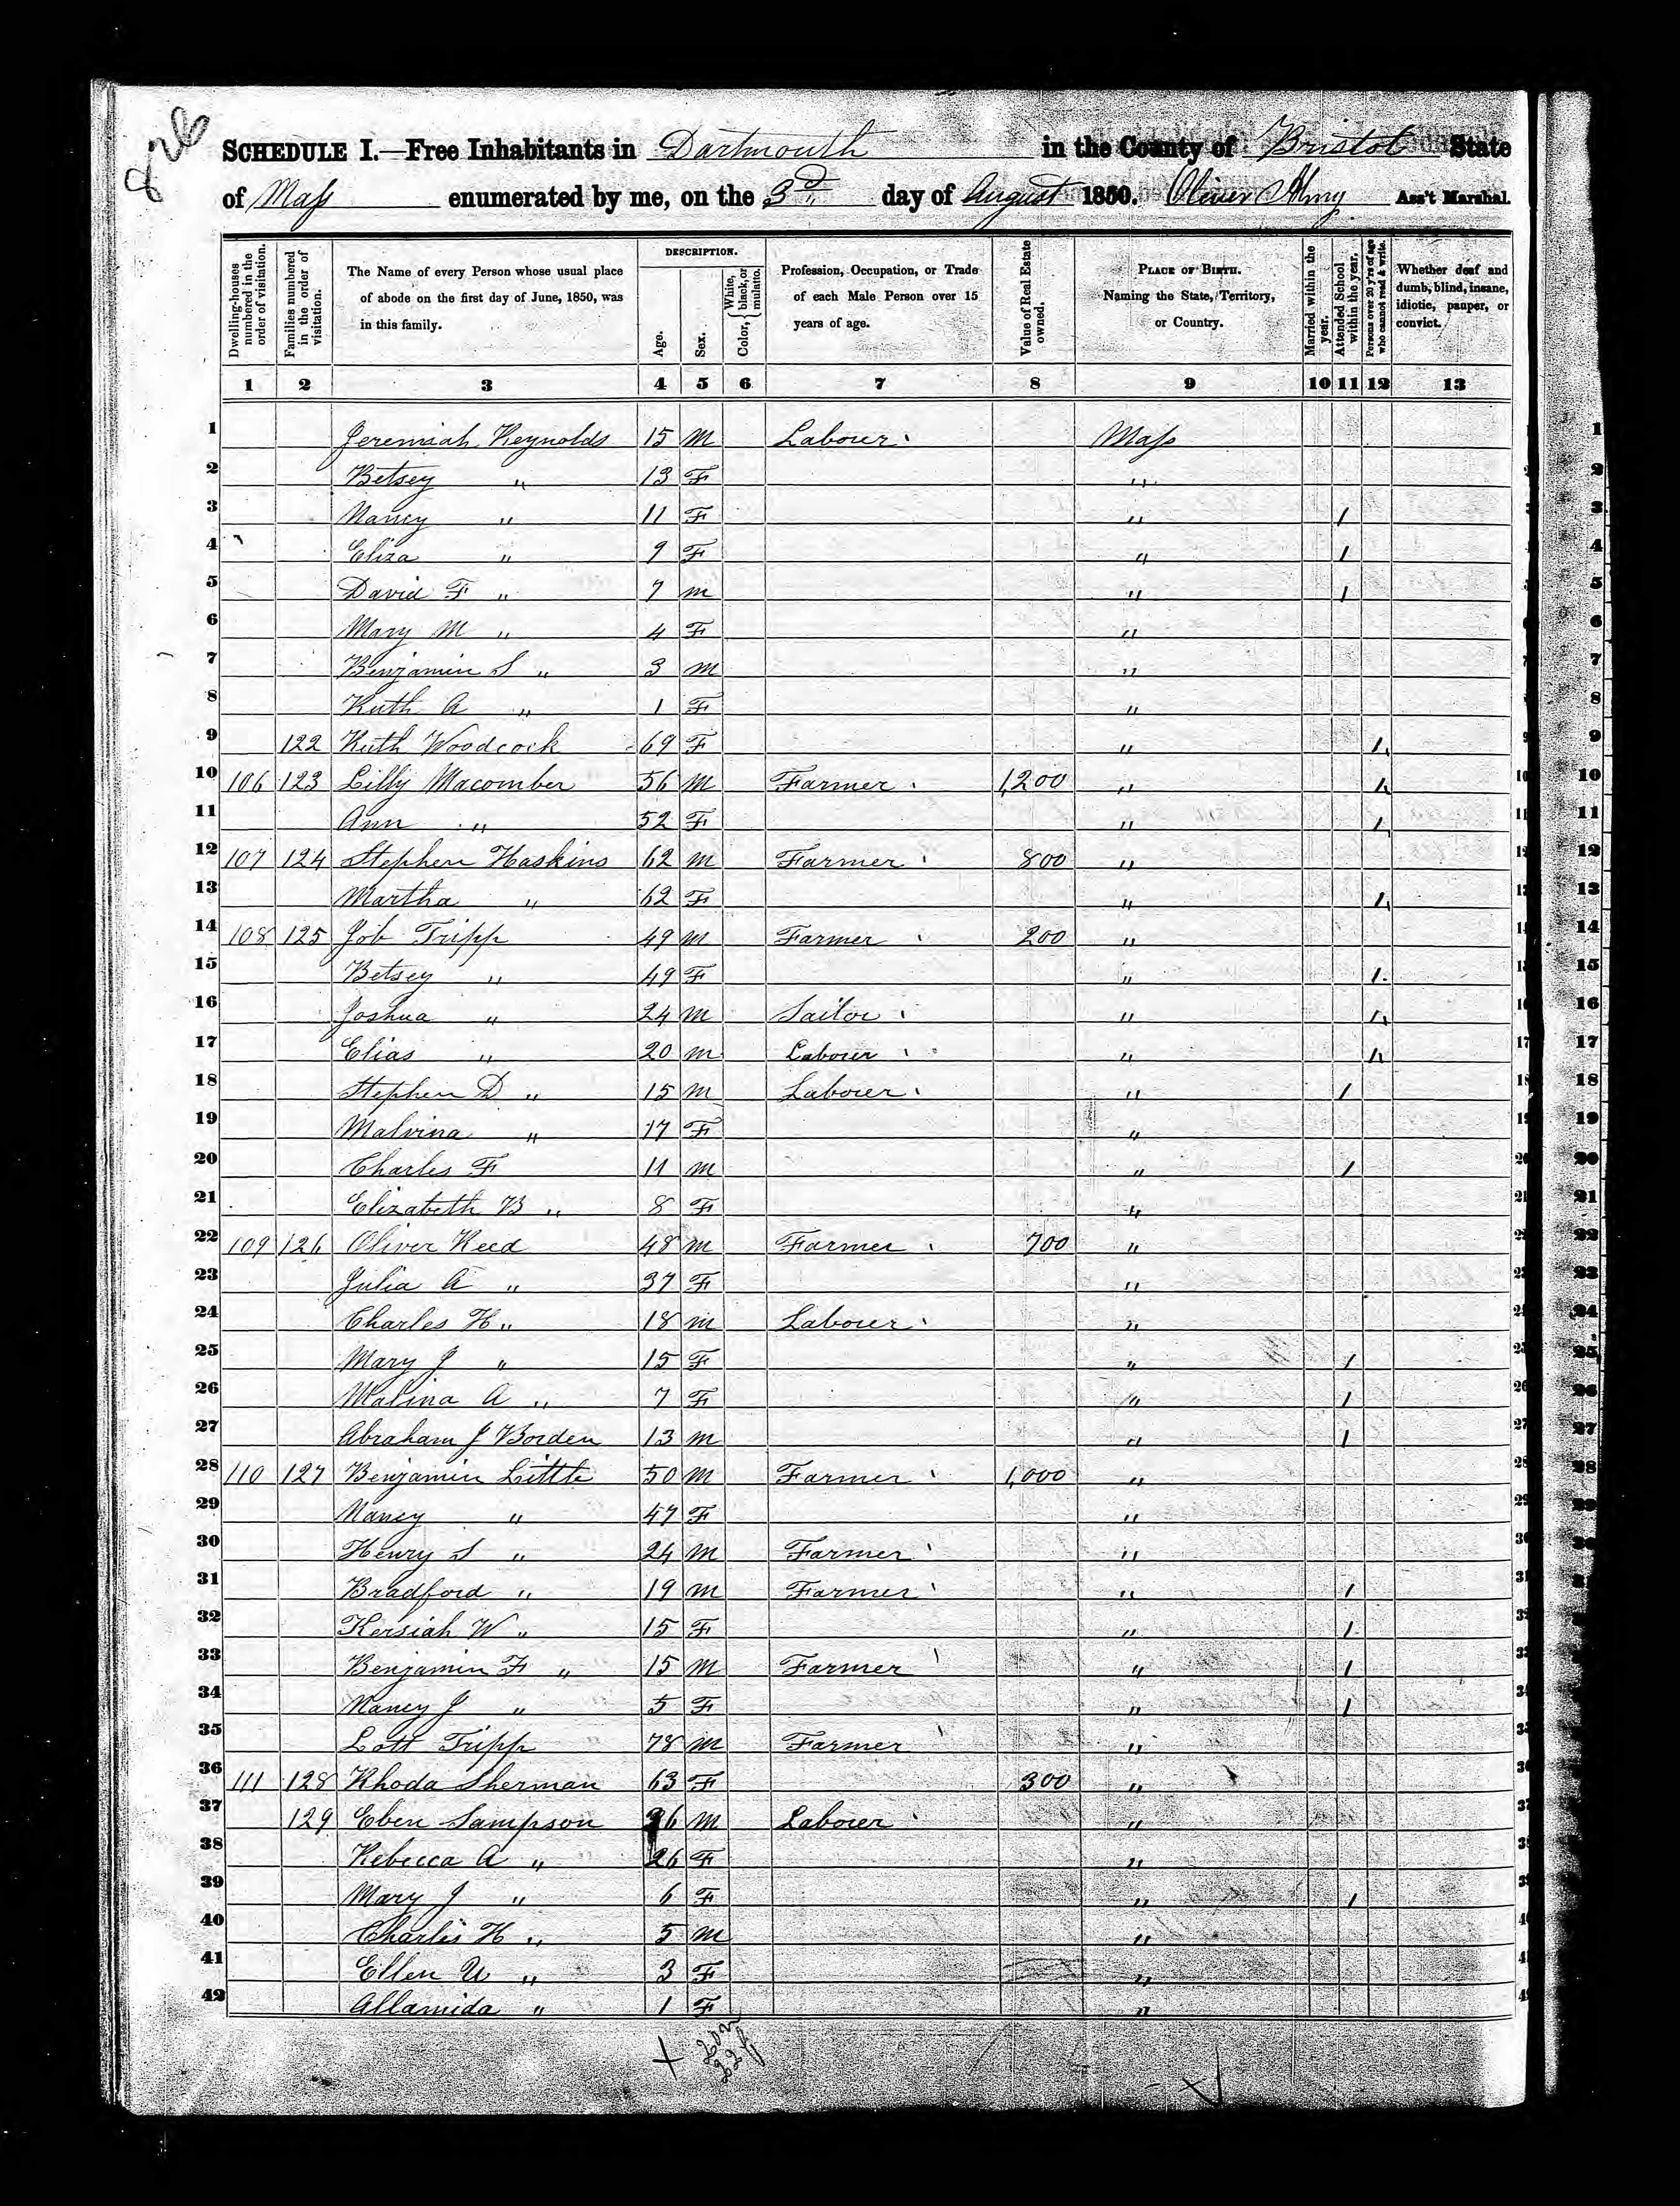 826
SCHEDULE I.—Free Inhabitants in Dartmouth in the County of Bristol State
of Mass enumerated by me, on the 3d day of August 1850. Oliver Almy Ass't Marshal.
Dwelling-houses numbered in the order of visitation.
Families numbered in the order of visitation.
The Name of every Person whose usual place of abode on the first day of June, 1850, was in this family.
DESCRIPTION.
Age.
Sex.
Color, { White, black, or mulatto.
Profession, Occupation, or Trade of each Male Person over 15 years of age.
Value of Real Estate owned.
PLACE OF BIRTH. Naming the State, Territory, or Country.
Married within the year.
Attended School within the year.
Persons over 20 y'rs of age who cannot read & write.
Whether deaf and dumb, blind, insane, idiotic, pauper, or convict.
1 2 3 4 5 6 7 8 9 10 11 12 13
1 Jeremiah Reynolds 15 M Labourer Mass 1
2 Betsey " 13 F " 2
3 Nancy " 11 F " 1 3
4 Eliza " 9 F " 1 4
5 David F " 7 M " 1 5
6 Mary M " 4 F " 6
7 Benjamin S " 3 M " 7
8 Ruth A " 1 F " 8
9 122 Ruth Woodcock 69 F " 1 9
10 106 123 Lilly Macomber 56 M Farmer 1,200 " 1 10
11 Ann " 52 F " 1 11
12 107 124 Stephen Haskins 62 M Farmer 800 " 12
13 Martha " 62 F " 1 13
14 108 125 Job Tripp 49 M Farmer 200 " 14
15 Betsey " 49 F " 1 15
16 Joshua " 24 M Sailor " 1 16
17 Elias " 20 M Labourer " 1 17
18 Stephen D " 15 M Labourer " 1 18
19 Malvina " 17 F " 19
20 Charles F 11 M " 1 20
21 Elizabeth B " 8 F " 21
22 109 126 Oliver Reed 48 M Farmer 700 " 22
23 Julia A " 37 F " 23
24 Charles H " 18 M Labourer " 24
25 Mary J " 15 F " 1 25
26 Malina A " 7 F " 1 26
27 Abraham J Borden 13 M " 1 27
28 110 127 Benjamin Little 50 M Farmer 1,000 " 28
29 Nancy " 47 F " 29
30 Henry S " 24 M Farmer " 30
31 Bradford " 19 M Farmer " 1 31
32 Kersiah W " 15 F " 1
33 Benjamin F " 15 M Farmer " 1
34 Nancy J " 5 F " 1
35 Lott Tripp 78 M Farmer "
36 111 128 Rhoda Sherman 63 F 300 "
37 129 Eben Sampson 26 M Labourer "
38 Rebecca A " 26 F "
39 Mary J " 6 F " 1
40 Charles H " 5 M "
41 Ellen U " 3 F "
42 Allamida " 1 F "